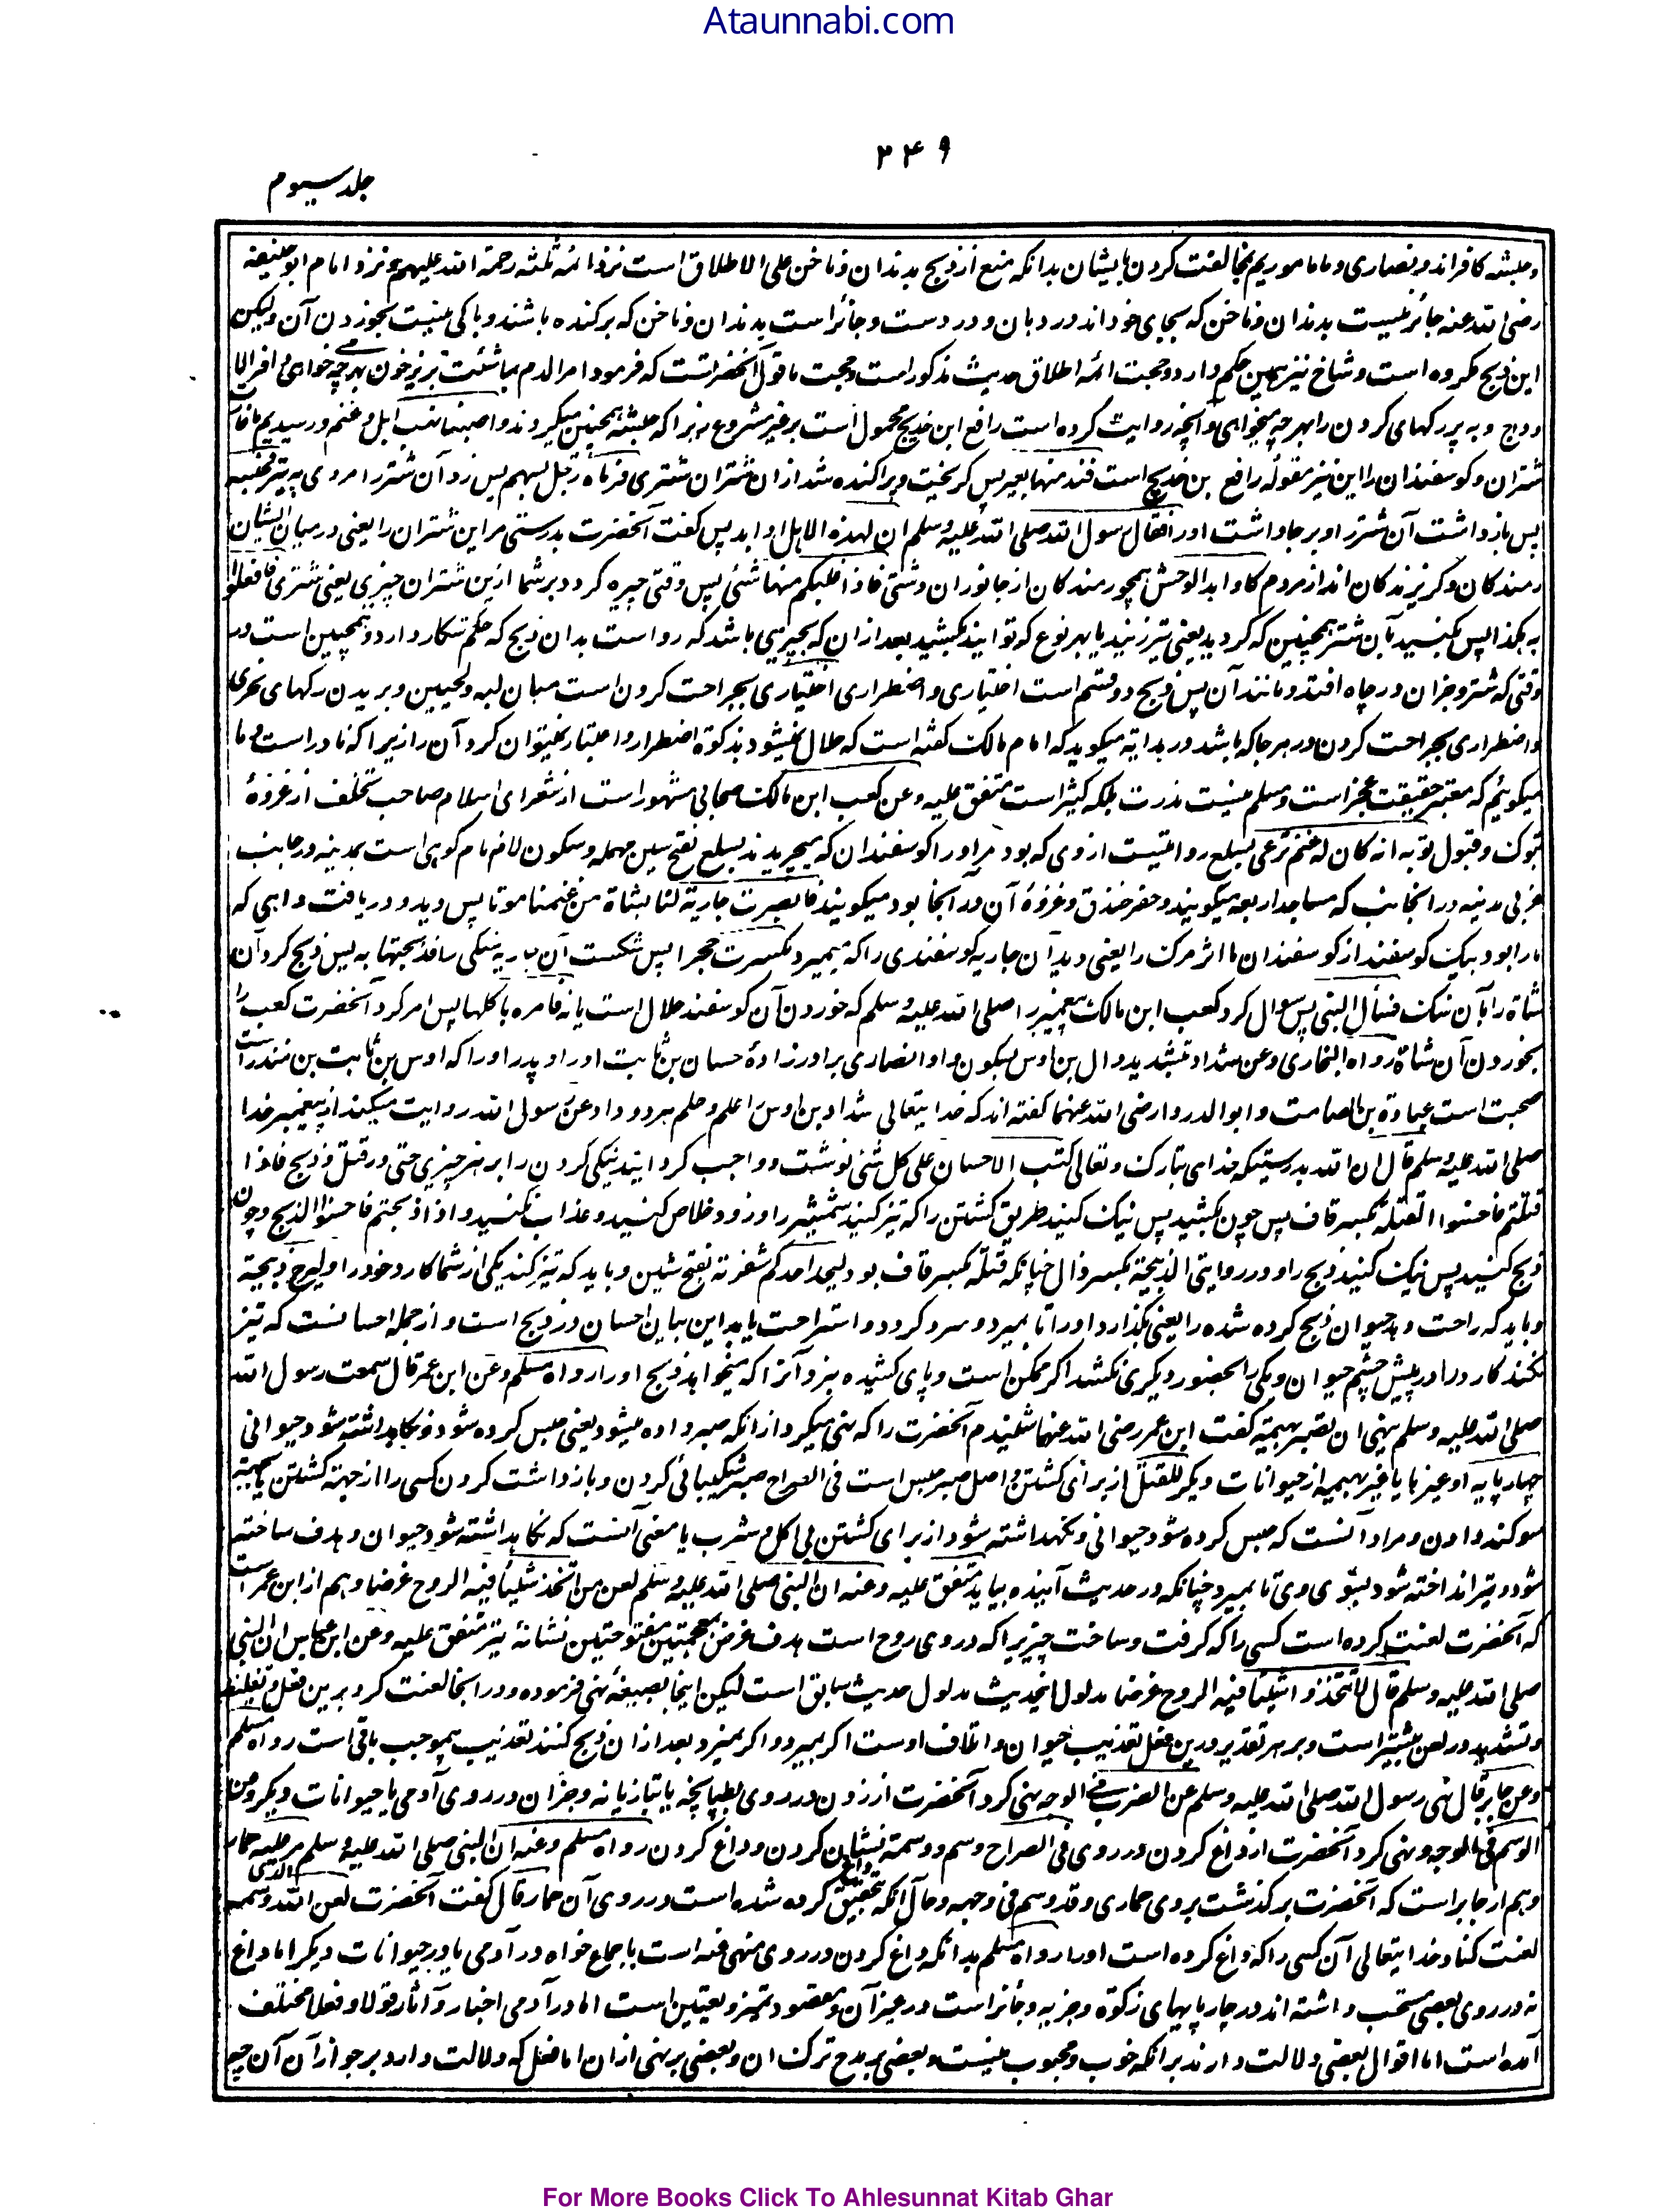 Ataunnabi.com
۲۴۹
جلد سیوم
و حبشه کافراند و نصاری و ما ماموریم بمخالفت کردن بایشان بدانکه منع از ذبح بدندان و ناخن علی الاطلاق است نزد ائمه ثلثه رحمة الله علیهم و نزد امام ابو حنیفه
رضی الله عنه جائز نیست بدندان و ناخن که بجای خود اند در دهان و در دست و جائز است بدندان و ناخن که برکنده باشند و باکی نیست بخوردن آن ولیکن
این ذبح مکروه است و شاخ نیز همین حکم دارد و حجت ائمه اطلاق حدیث مذکور است و حجت ما قول آنحضرت است که فرمود امرالدم بما شئت بریز خون بهر چه خواهی و افرالا
وداج و ببر رگهای گردن را بهر چه میخواهی و آنچه روایت کرده است رافع ابن خدیج محمول است بر غیر مشروع زیرا که حبشه همچنین میکردند و اصبنا نهب ابل و غنم و رسیدیم بغارت
شتران و گوسفندان را این نیز مقوله رافع بن خدیج است فند منها بعیر پس گریخت و پراکنده شد از ان شتران شتری فرماه رجل بسهم پس زد آن شتر را مردی به تیر فحبسه
پس بازداشت آن شتر را و بر جا داشت او را فقال رسول الله صلی الله علیه وسلم ان لهذه الابل اوابد پس گفت آنحضرت بدرستی مر این شتران را یعنی در میان ایشان
رمندگان و گریزندگان اند از مردم کاوابد الوحش همچو رمندگان از جانوران وحشی فاذا غلبکم منها شئ پس وقتی چیره گردد بر شما ازین شتران چیزی یعنی شتری فافعلوا
به هکذا پس بکنید بآن شتر همچنین که کردید یعنی تیر زنید یا بهر نوع که توانید بکشید بعد از ان که بچیزی باشد که رواست بدان ذبح که حکم شکار دارد و همچنین است در
وقتی که شتر و جزان در چاه افتد و مانند آن پس ذبح دو قسم است اختیاری و اضطراری اختیاری بجراحت کردن است میان لبه و لحیین و بریدن رگهای نحری
و اضطراری بجراحت کردن در هر جا که باشد و در هدایه میگوید که امام مالک گفته است که حلال نمیشود بذکوة اضطرار و اعتبار نمیتوان کرد آن را زیرا که نادر است و ما
میگوئیم که معتبر حقیقت عجز است و مسلم نیست ندرت بلکه کثیر است متفق علیه و عن کعب ابن مالک صحابی مشهور است از شعرای اسلام صاحب تخلف از غزوهٔ
تبوک و قبول توبه انه کان له غنم ترعی بسلع روایتست از وی که بود مر او را گوسفندان که میچریدند بسلع بفتح سین مهمله و سکون لام نام کوهی است بمدینه در جانب
غربی مدینه در آنجانب که مساجد اربعه میگویند و حفر خندق و غزوهٔ آن در آنجا بود میگویند فابصرت جاریة لنا بشاة من غنمنا موتا پس دید و دریافت داهی که
ما را بود بیک گوسفند از گوسفندان ما اثر مرگ را یعنی دید آن جاریه گوسفندی را که میمیرد فکسرت حجرا پس شکست آن جاریه سنگی را فذبحتها به پس ذبح کرد آن
شاة را بآن سنگ فسأل النبی پس سوال کرد کعب ابن مالک پیغمبر را صلی الله علیه وسلم که خوردن آن گوسفند حلال است یا نه فامره باکلها پس امر کرد آنحضرت کعب را
بخوردن آن شاة رواه البخاری و عن شداد بتشدید دال بن اوس بسکون واو انصاری برادر زادهٔ حسان بن ثابت او را و پدر او را که اوس بن ثابت بن منذر است
صحبت است عبادة بن الصامت و ابو الدرداء رضی الله عنهما گفته اند که خدایتعالی شداد بن اوس را علم و حلم هر دو داد عن رسول الله روایت میکند از پیغمبر خدا
صلی الله علیه وسلم قال ان الله بدرستیکه خدای تبارک و تعالی کتب الاحسان علی کل شئ نوشت و واجب گردانید نیکی کردن را بر هر چیزی حتی در قتل و ذبح فاذا
قتلتم فاحسنوا القتلة بکسر قاف پس چون بکشید پس نیک کنید طریق کشتن را که تیز کنید شمشیر را و زود خلاص کنید و عذاب نکنید و اذا ذبحتم فاحسنوا الذبح و چون
ذبح کنید پس نیک کنید ذبح را و در روایتی الذبیحة بکسر ذال چنانکه قتلة بکسر قاف بود و لیحد احدکم شفرته بفتح شین و باید که تیز کند یکی از شما کارد خود را و لیرح ذبیحته
و باید که راحت دهد حیوان ذبح کرده شده را یعنی بگذارد او را تا بمیرد و سرد گردد و استراحت یابد این بیان احسان در ذبح است و از جمله احسانست که تیز
نکند کارد را در پیش چشم حیوان و یکی را بحضور دیگری نکشد اگر ممکن است و پای کشیده نبرد آنرا که میخواهد ذبح او را رواه مسلم و عن ابن عمر قال سمعت رسول الله
صلی الله علیه وسلم ینهی ان تصبر بهیمة گفت ابن عمر رضی الله عنهما شنیدم آنحضرت را که نهی میکرد از انکه صبر داده میشود یعنی حبس کرده شود و نگاهداشته شود حیوانی
چهار پایه او غیرها یا غیر بهیمه از حیوانات دیگر للقتل از برای کشتن و اصل صبر حبس است فی الصراح صبر شکیبائی کردن و بازداشت کردن کسی را از جهة کشتن یا بجهة
سوگند دادن و مراد آنست که حبس کرده شود حیوانی و نگهداشته شود از برای کشتن بی اکل و شرب یا معنی آنست که نگاهداشته شود حیوان و هدف ساخته
شود و تیر انداخته شود بسوی وی تا بمیرد چنانکه در حدیث آینده بیاید متفق علیه و عنه ان النبی صلی الله علیه وسلم لعن من اتخذ شیئا فیه الروح غرضا و هم از ابن عمر است
که آنحضرت لعنت کرده است کسی را که گرفت و ساخت چیزیرا که در وی روح است هدف غرض بمعجمتین مفتوحتین نشانه تیر متفق علیه و عن ابن عباس ان النبی
صلی الله علیه وسلم قال لا تتخذوا شیئا فیه الروح غرضا مدلول اینحدیث مدلول حدیث سابق است لیکن اینجا بصیغهٔ نهی فرموده و در آنجا لعنت کرد برین فعل و تغلیظ
و تشدید در لعن بیشتر است و بر هر تقدیر درین فعل تعذیب حیوان و اتلاف اوست اگر بمیرد و اگر نمیرد و بعد از ان ذبح کنند تعذیب بیموجب باقی است رواه مسلم
و عن جابر قال نهی رسول الله صلی الله علیه وسلم عن الضرب فی الوجه نهی کرد آنحضرت از زدن در روی بطپانچه یا بتازیانه و جزان در روی آدمی یا حیوانات دیگر و عن
الوسم فی الوجه و نهی کرد آنحضرت از داغ کردن در روی فی الصراح وسم و وسمة نشان کردن و داغ کردن رواه مسلم و عنه ان النبی صلی الله علیه وسلم مر علیه حمار
و هم از جابر است که آنحضرت برگذشت بروی حماری و قد وسم فی وجهه و حال آنکه بتحقیق داغ کرده شده است در روی آن حمار قال گفت آنحضرت لعن الله الذی وسمه
لعنت کناد خدایتعالی آن کسی را که داغ کرده است او را رواه مسلم بدانکه داغ کردن در روی منهی عنه است باجماع خواه در آدمی یا در حیوانات دیگر اما داغ
نه در روی بعضی مستحب داشته اند در چارپایهای زکوة و جزیه و جائز است در غیر آن و مقصود تمیز و تعیین است اما در آدمی اخبار و آثار قولا و فعلا مختلف
آمده است اما اقوال بعضی دلالت دارند بر انکه خوب و محبوب نیست و بعضی بر مدح ترک آن و بعضی بر نهی از ان اما فعل که دلالت دارد بر جواز آن آن چه
For More Books Click To Ahlesunnat Kitab Ghar